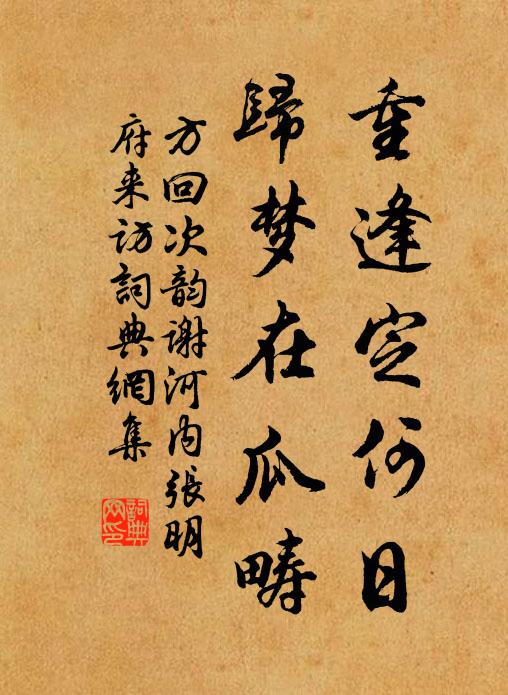 重逢定何日
歸梦在瓜疇
方回次韵谢河内張明
府来访詞典網集
詞典
网印